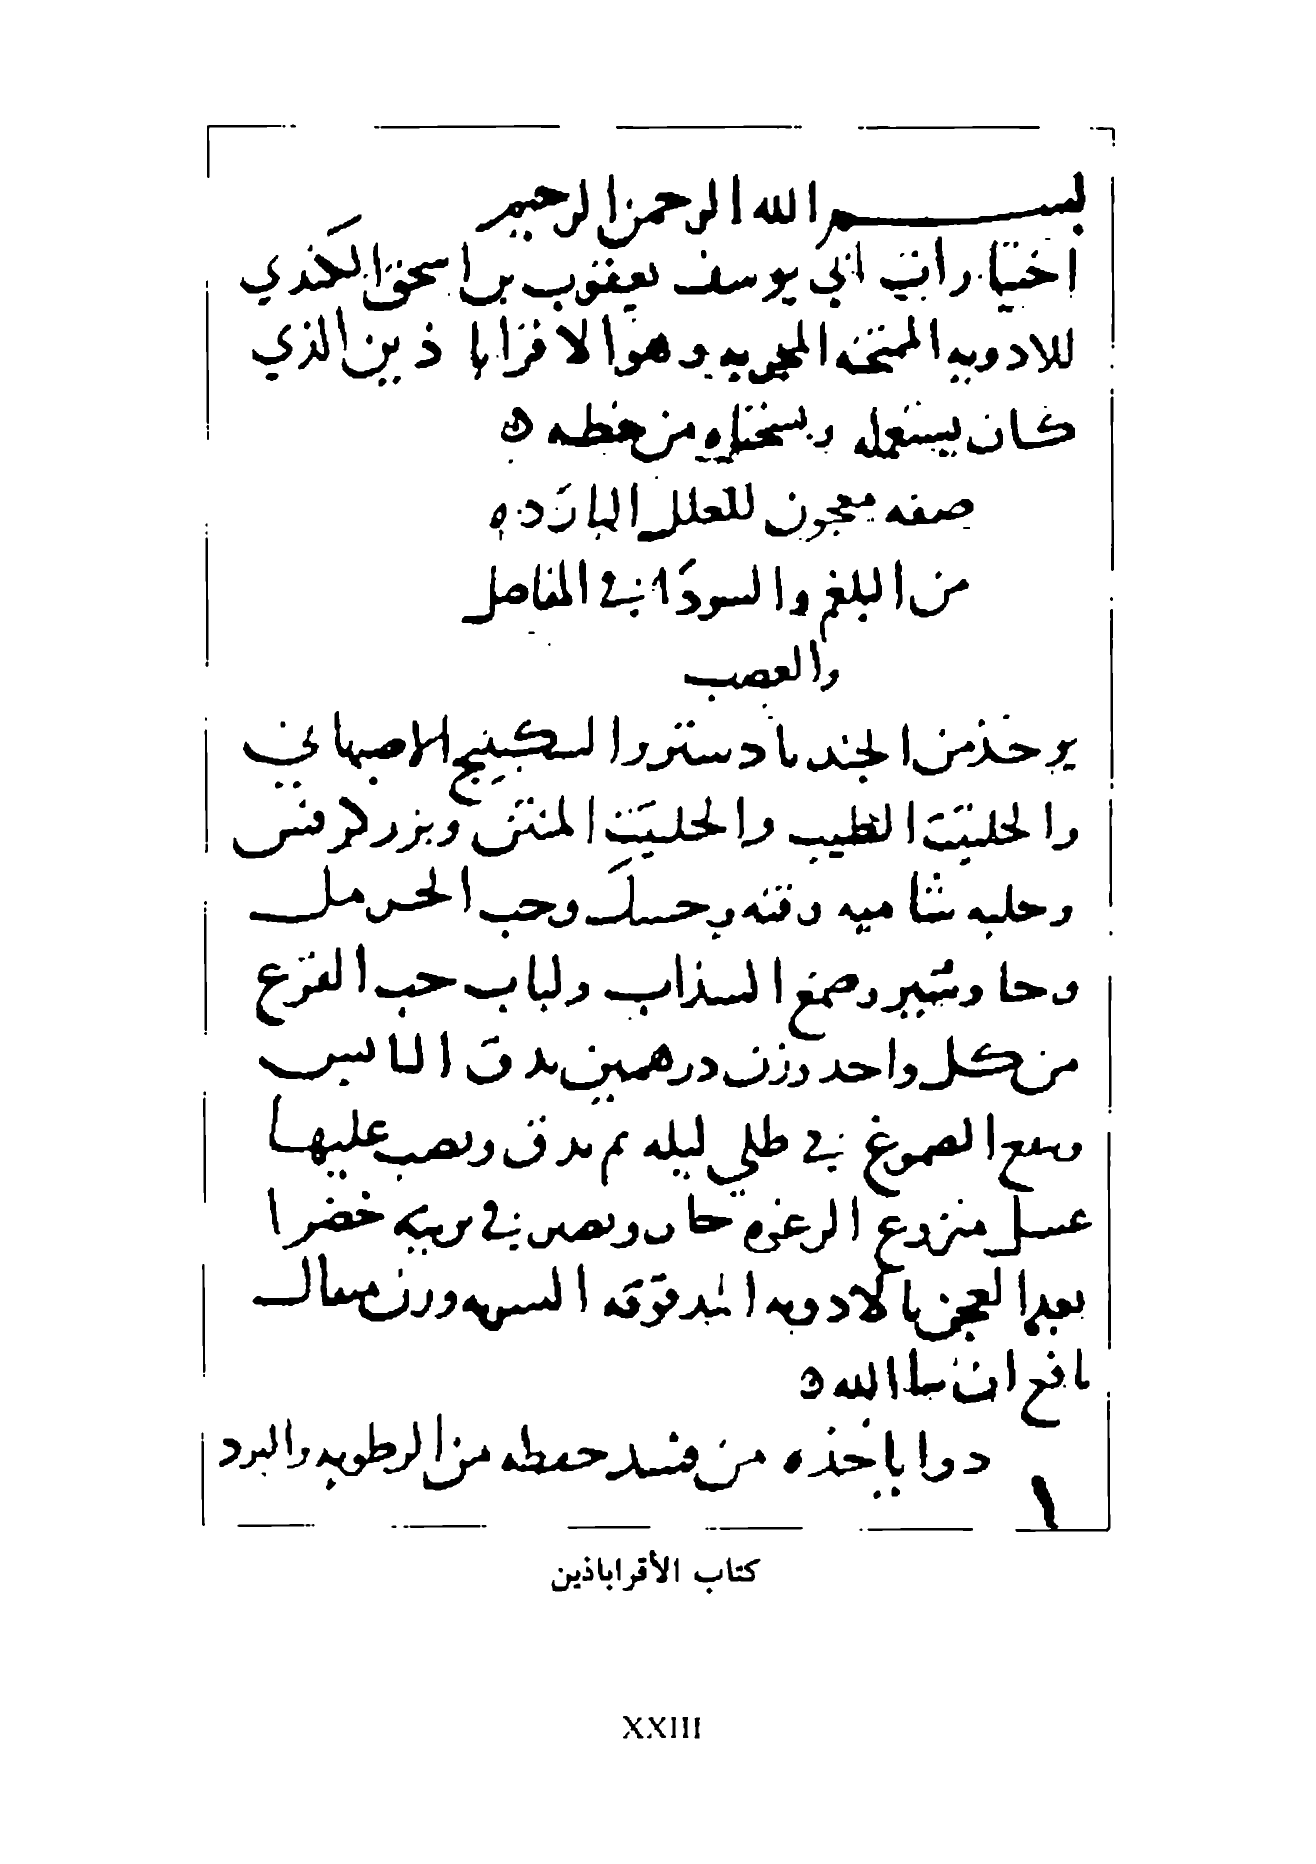 بسم الله الرحمن الرحيم
اختيارات ابي يوسف يعقوب بن اسحق الكندي
للادويه الممتحنه المجربه وهو الاقراباذين الذي
كان يستعمله من خطه ه
صفه معجون للعلل البارده
من البلغم والسودا في المفاصل
والعصب
يوخذ من الجندبادستر والسكبينج الاصبهاني
والحلتيت الطيب والحلتيت المنتن وبزر كرفس
وحلبه شاميه وقنه وحسك وحب الحرمل
وجاوشير وصمغ السذاب ولباب حب القرع
من كل واحد وزن درهمين يدق اليابس
وينقع الصموغ في طلي ليله ثم يدق ويصب عليها
عسل منزوع الرغوه ويصير في برنيه خضرا
بعد العجن بالادويه المدقوقه الشربه وزن مثقال
نافع ان شا الله ه
دوا ياخذه من فسد حفظه من الرطوبه والبرد
١
كتاب الأقراباذين
XXIII